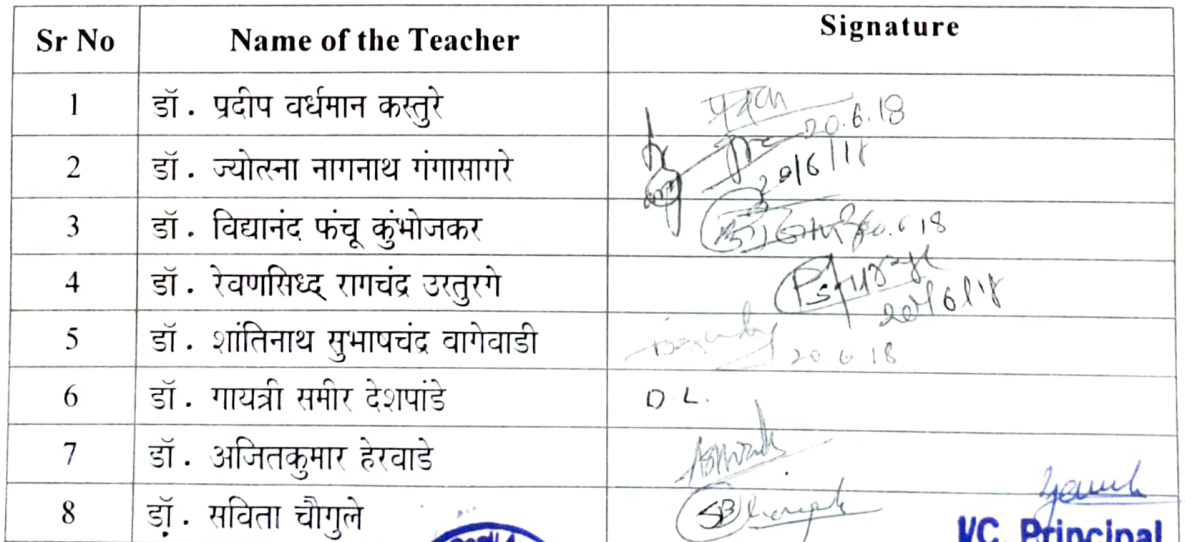 Sr No Name of the Teacher Signature
1 डॉ. प्रदीप वर्धमान कस्तुरे 20.6.18
2 डॉ. ज्योत्स्ना नागनाथ गंगासागरे 20/6/18
3 डॉ. विद्यानंद फंचू कुंभोजकर 20.6.18
4 डॉ. रेवणसिध्द रागचंद्र उरतुरगे 20/6/18
5 डॉ. शांतिनाथ सुभाषचंद्र वागेवाडी 20 6 18
6 डॉ. गायत्री समीर देशपांडे D L.
7 डॉ. अजितकुमार हेरवाडे
8 डॉ. सविता चौगुले
I/C. Principal